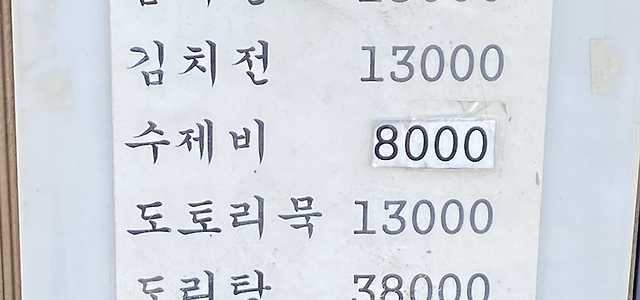 김치전 13000
수제비 8000
도토리묵 13000
도리탕 38000